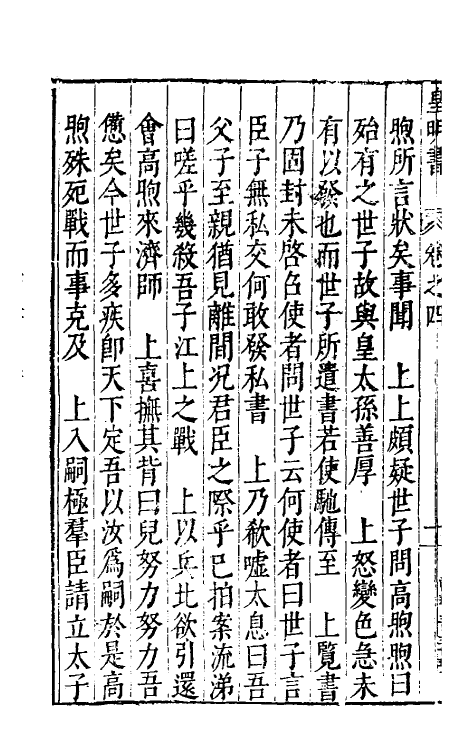 皇明書　卷之四
煦所言狀矣事聞　上上頗疑世子問高煦煦曰
殆有之世子故與皇太孫善厚　上怒變色急未
有以發也而世子所遣書若使馳傳至　上覽書
乃固封未啓召使者問世子云何使者曰世子言
臣子無私交何敢發私書　上乃欷噓太息曰吾
父子至親猶見離間况君臣之際乎已拍案流涕
曰嗟乎幾殺吾子江上之戰　上以兵北欲引還
會高煦來濟師　上喜撫其背曰兒努力努力吾
憊矣今世子多疾卽天下定吾以汝爲嗣於是高
煦殊死戰而事克及　上入嗣極羣臣請立太子